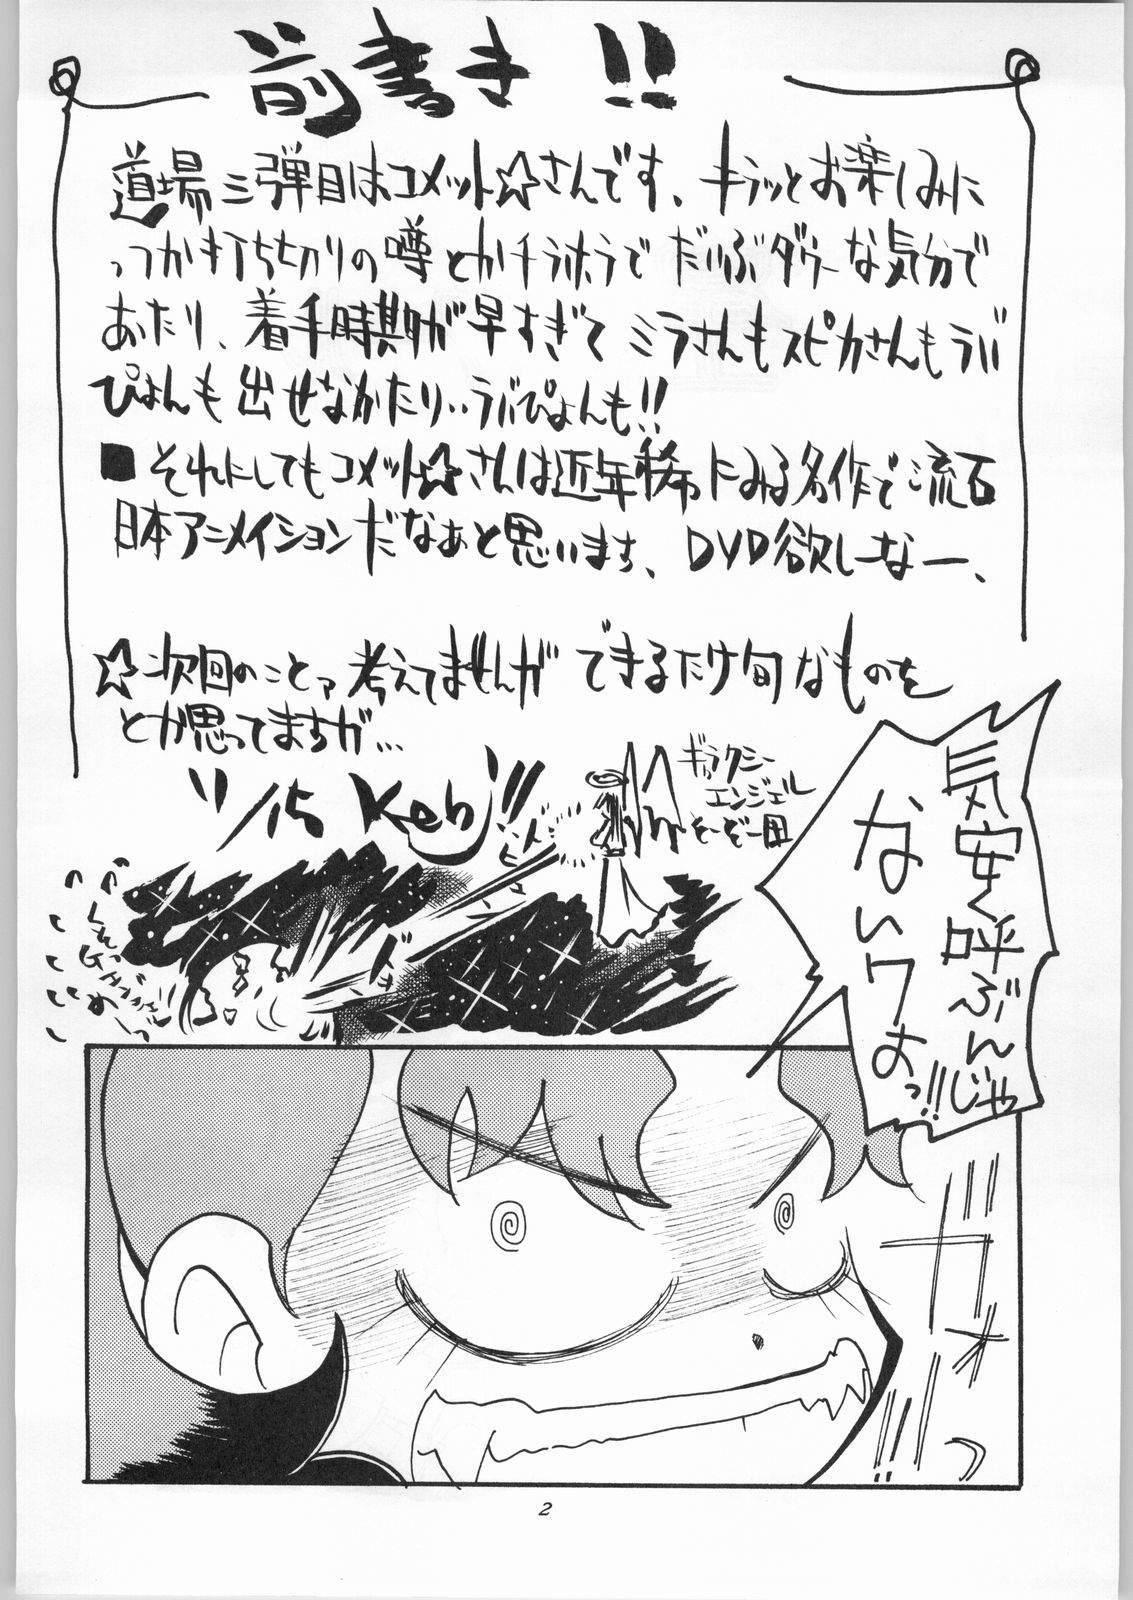 前書き!!
道場三弾目はコメット☆さんです、キラッとお楽しみに
つか打ち切りの噂とかチラホラでだいぶダウナーな気分で
あたり、着手時期が早すぎてミラさんもスピカさんもラバ
ぴょんも出せなかたり‥ラバぴょんも!!
■それにしてもコメット☆さんは近年稀にみる名作で流石
日本アニメイションだなぁと思います、DVD欲しーなー、
☆次回のことァ考えてませんができるだけ旬なものを
とか思ってますが…
11/15 Keb
ギャラクシー
エンジェル
そーぞー図
気安く呼ぶんじゃ
ないワよっ!!
2